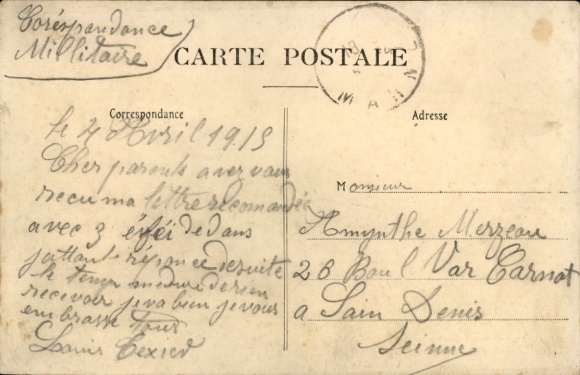 Coréspondance
Millitaire
CARTE POSTALE
Correspondance
Adresse
le 4 Avril 1915
Cher parents avez vous
recu ma lettre recomandée
avec 3 dedans
jattant réponce desuite
le temp me dure de rien
recevoir je va bien je vous
embrasse Tous
Louis Texied
Monsieur
Amynthe Merzeau
26 Boul Var Carnot
a Sain Denis
Seinne